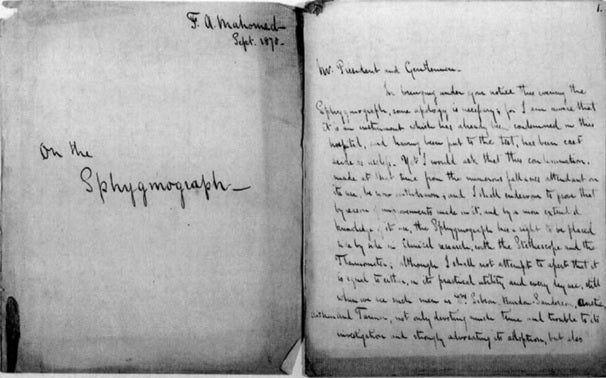 F. A. Mahomed
Sept. 1870.
On the
Sphygmograph
1.
Mr. President and Gentlemen
In bringing under your notice this evening the
Sphygmograph, some apology is necessary, for I am aware that
it is an instrument which has already been condemned in this
hospital, and having been put to the test, has been cast
aside as useless. Yet I would ask that this condemnation,
made at that time from the numerous fallacies attendant on
its use, be now withdrawn; and I shall endeavour to prove that
by reason of improvements made in it, and by a more extended
knowledge of its use, the Sphygmograph has a right to be placed
side by side in Clinical research, with the Stethoscope and the
Thermometer, although I shall not attempt to assert that it
is equal to either, in its practical utility and every day use, still
when we see such men as Burdon Sanderson, Anstie,
and not only devoting much time and trouble to its
investigation and strongly advocating its adoption, but also